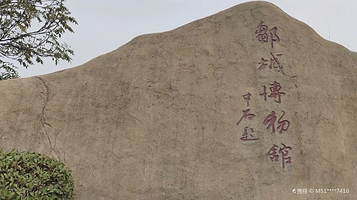 邹城博物馆
中石题
携程 © M51****7416